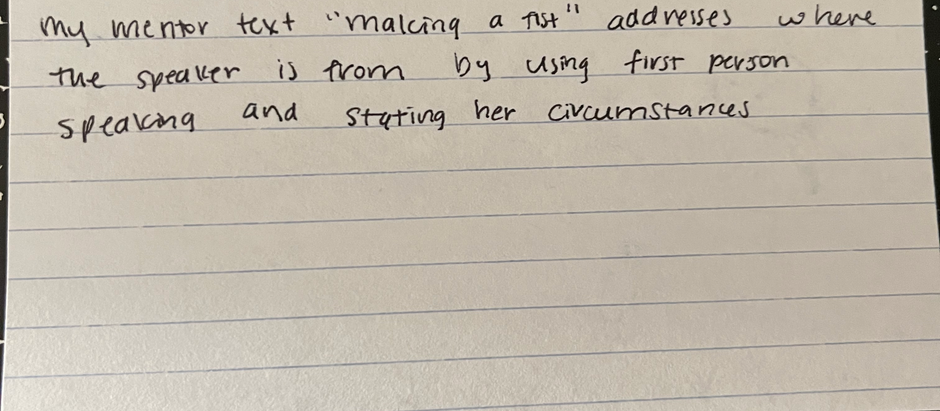 my mentor text "making a fist" addresses where
the speaker is from by using first person
speaking and stating her circumstances